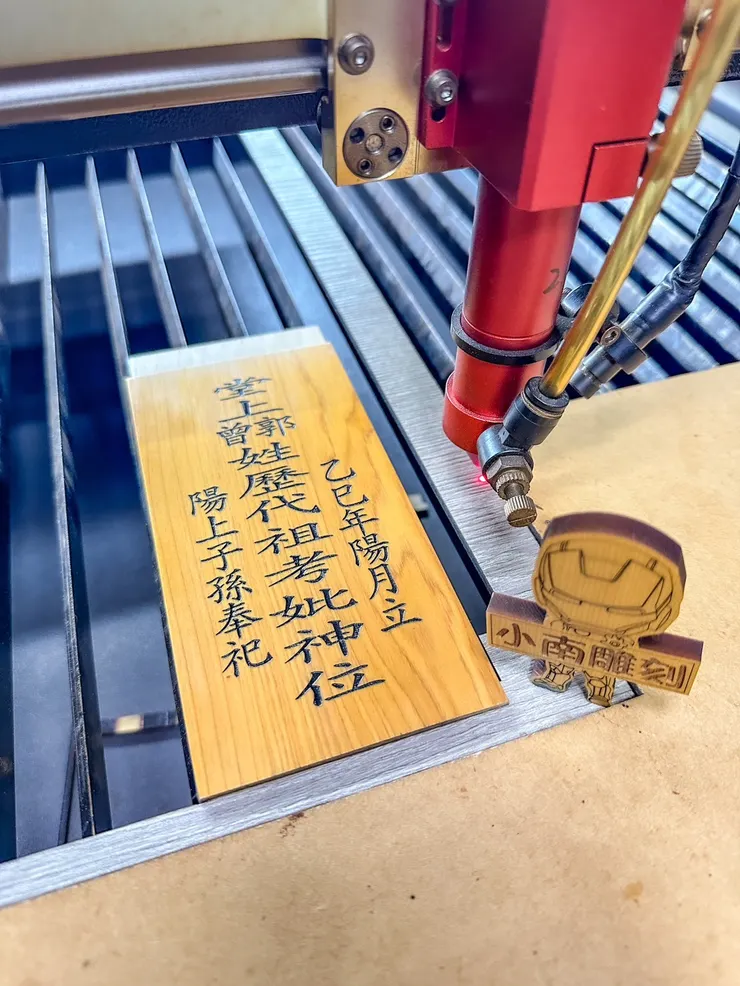 乙巳年陽月立
堂上郭曾姓歷代祖考妣神位
陽上子孫奉祀
小南雕刻
2